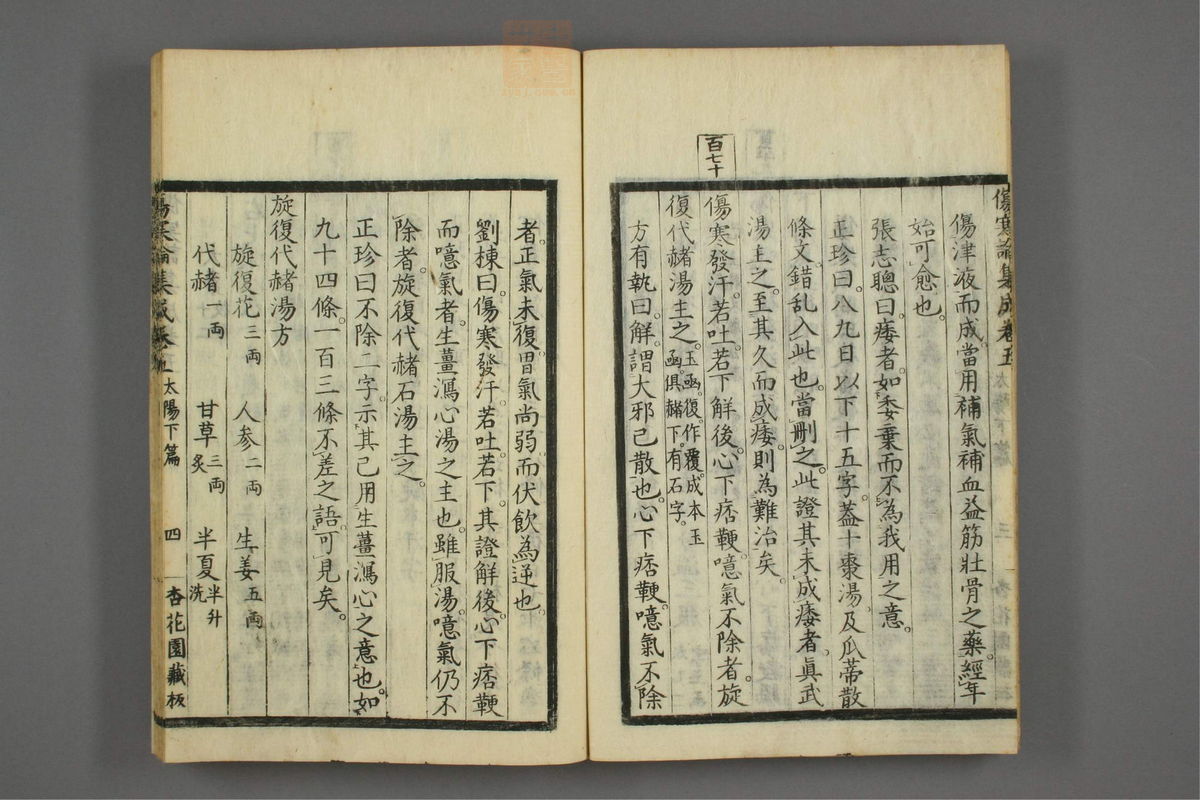 傷寒論集成卷五
傷津液而成當用補氣補血益筋壯骨之藥經年
始可愈也。
張志聰曰痿者。如委棄而不為我用之意。
正珍曰。八九日以下十五字。蓋十棗湯及瓜蒂散
條文。錯乱入此也。當刪之。此證其未成痿者。眞武
湯主之。至其久而成痿。則為難治矣。
百七十
傷寒發汗。若吐。若下解後。心下痞鞕。噫氣不除者。旋
復代赭湯主之。玉函。復。作覆。成本玉
函。俱赭下。有石字。
方有執曰。解。謂大邪已散也。心下痞鞕。噫氣不除
者。正氣未復。胃氣尚弱。而伏飲為逆也。
劉棟曰。傷寒發汗。若吐。若下。其證解後。心下痞鞕
而噫氣者。生薑瀉心湯之主也。雖服湯。噫氣仍不
除者。旋復代赭石湯主之。
正珍曰不除二字。示其已用生薑瀉心之意也。如
九十四條。一百三條不差之語。可見矣。
旋復代赭湯方
旋復花三両 人参二両 生姜五両
代赭一両 甘草三両炙 半夏半升洗
傷寒論集成卷五 太陽下篇 四 杏花園藏板